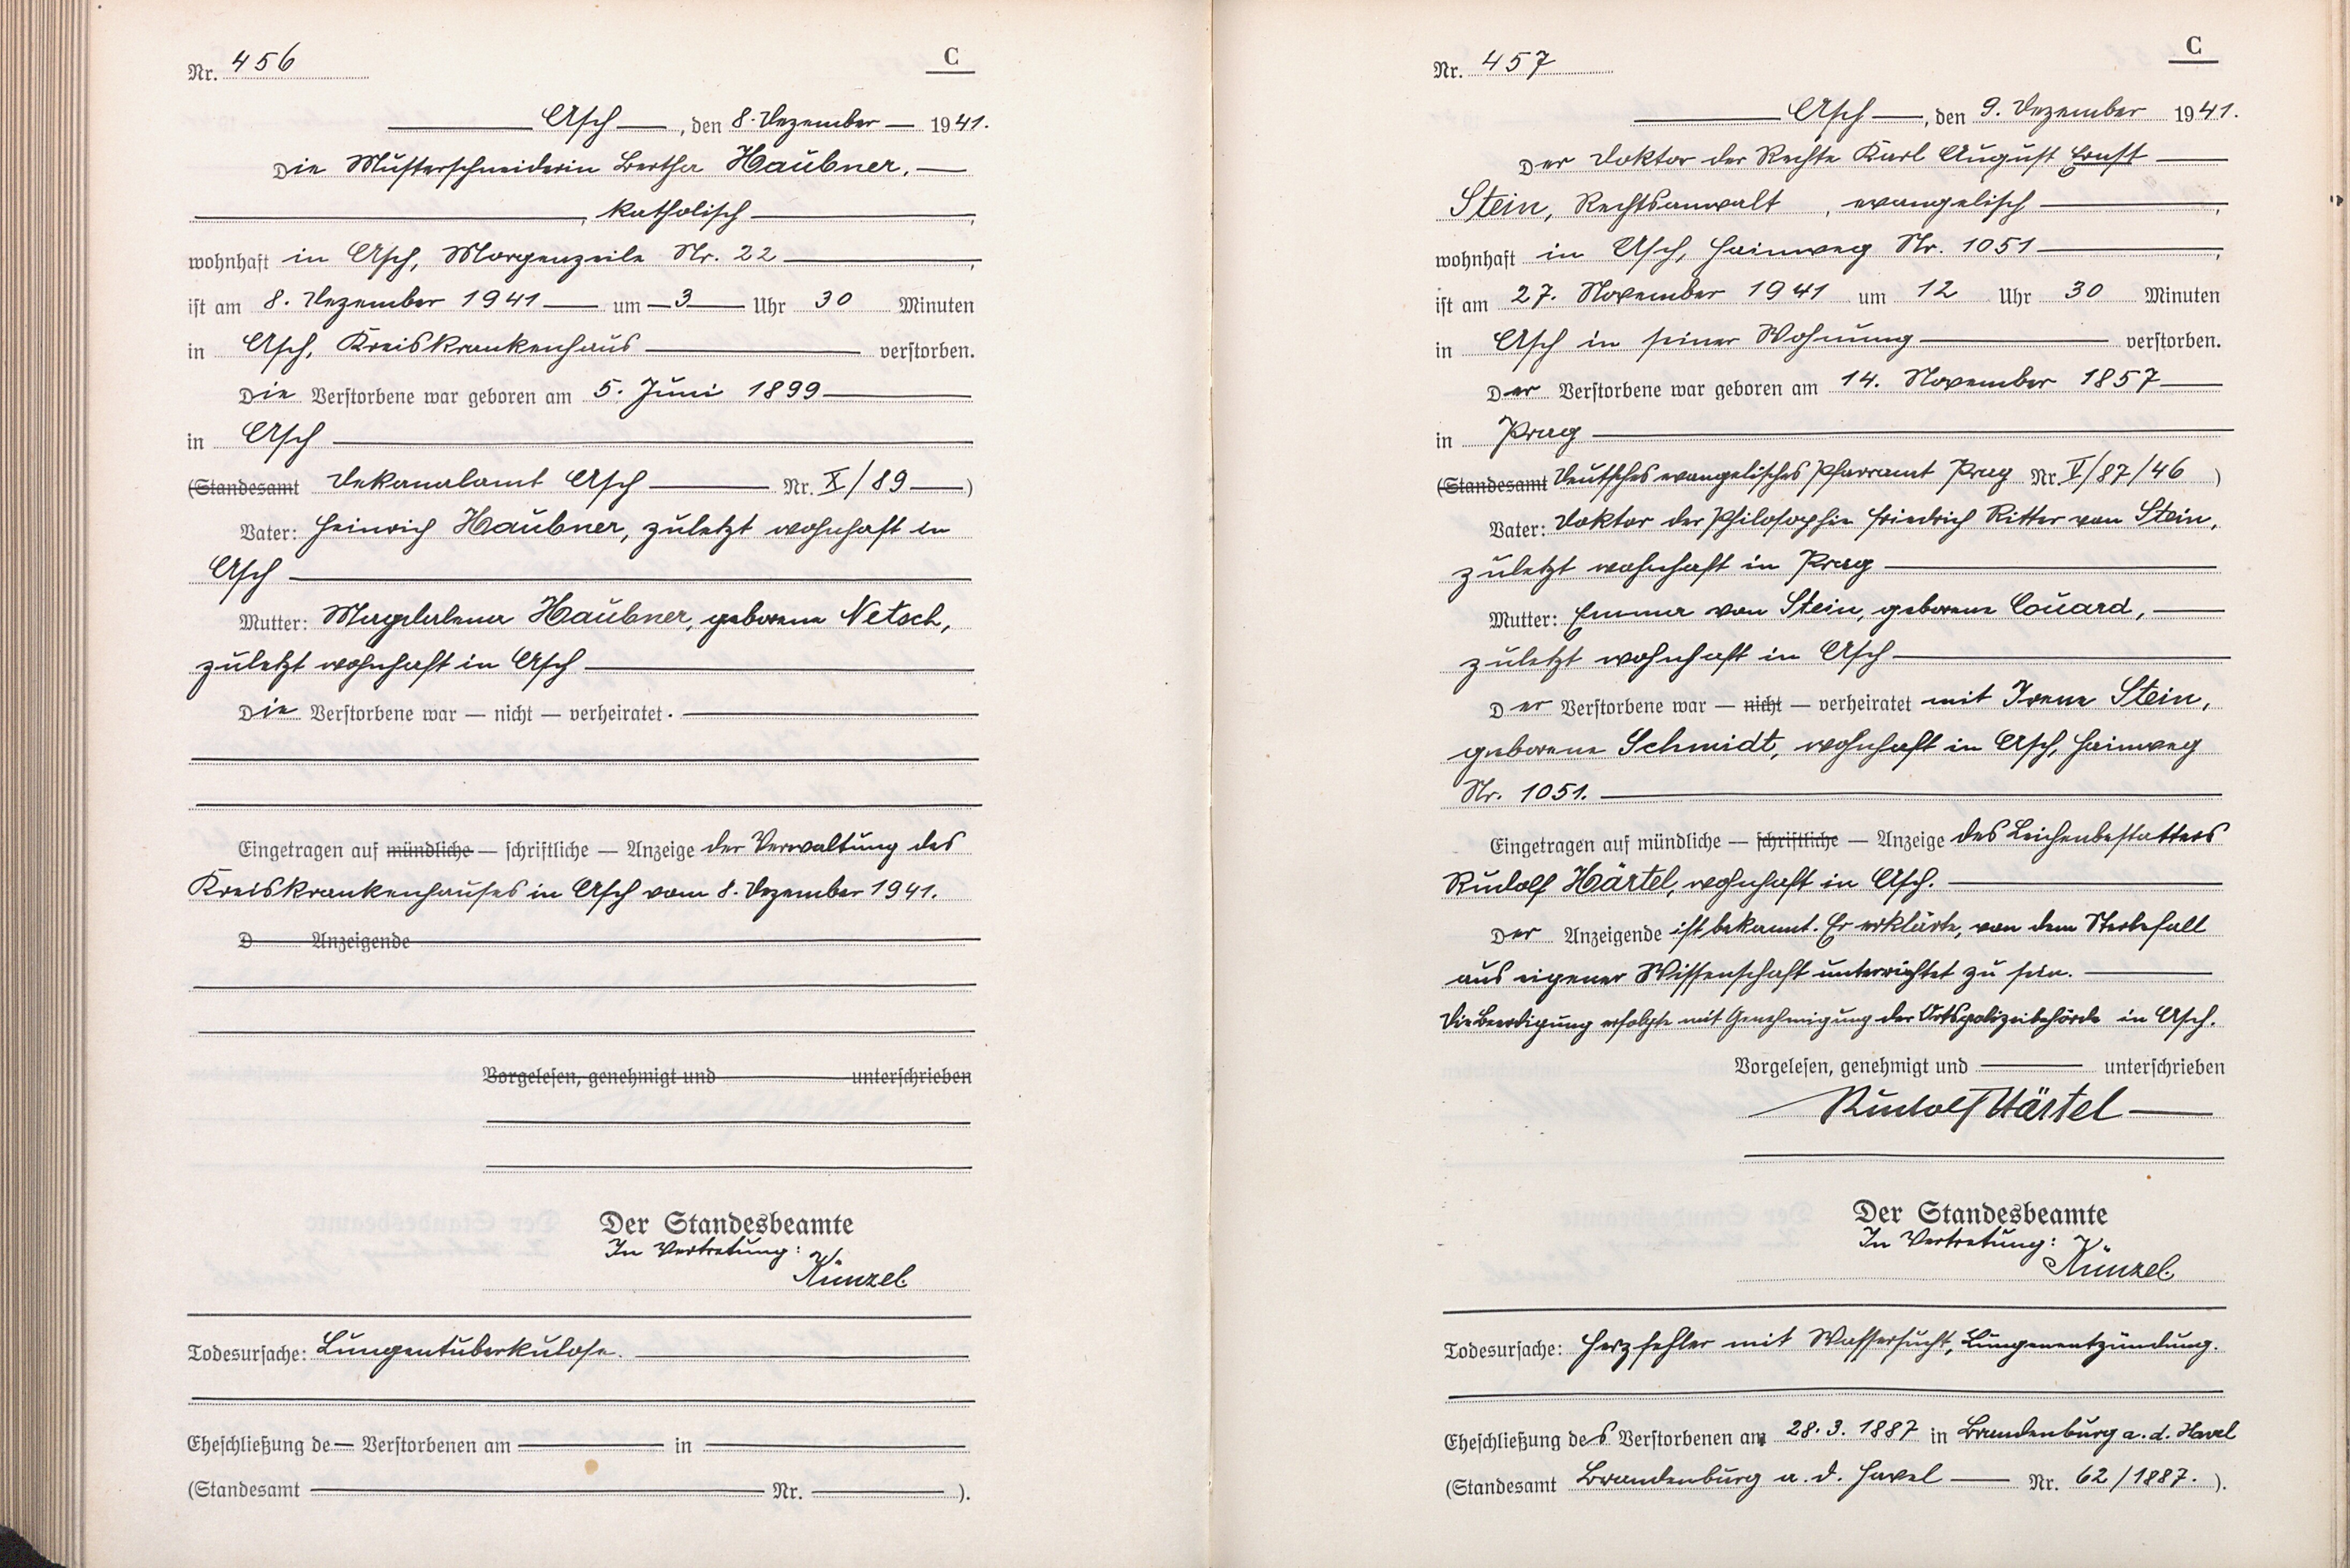 Nr. 456
C
Asch, den 8. Dezember 1941.
Die Musterschneiderin Bertha Haubner,
, katholisch,
wohnhaft in Asch, Morgenzeile Nr. 22,
ist am 8. Dezember 1941 um 3 Uhr 30 Minuten
in Asch, Kreiskrankenhaus verstorben.
Die Verstorbene war geboren am 5. Juni 1899
in Asch
(Standesamt Dekanalamt Asch Nr. X/89)
Vater: Heinrich Haubner, zuletzt wohnhaft in
Asch
Mutter: Magdalena Haubner, geborene Netsch,
zuletzt wohnhaft in Asch
Die Verstorbene war — nicht — verheiratet.
Eingetragen auf mündliche — schriftliche — Anzeige der Verwaltung des
Kreiskrankenhauses in Asch vom 8. Dezember 1941.
D Anzeigende
Vorgelesen, genehmigt und unterschrieben
Der Standesbeamte
In Vertretung:
Künzel
Todesursache: Lungentuberkulose.
Eheschließung de Verstorbenen am in
(Standesamt Nr. ).
Nr. 457
C
Asch, den 9. Dezember 1941.
Der Doktor der Rechte Karl August Ernst
Stein, Rechtsanwalt, evangelisch,
wohnhaft in Asch, Hainweg Nr. 1051,
ist am 27. November 1941 um 12 Uhr 30 Minuten
in Asch in seiner Wohnung verstorben.
Der Verstorbene war geboren am 14. November 1857
in Prag
(Standesamt Deutsches evangelisches Pfarramt Prag Nr. V/87/46)
Vater: Doktor der Philosophie Friedrich Ritter von Stein,
zuletzt wohnhaft in Prag
Mutter: Emma von Stein, geborene Couard,
zuletzt wohnhaft in Asch
Der Verstorbene war — nicht — verheiratet mit Irene Stein,
geborene Schmidt, wohnhaft in Asch, Hainweg
Nr. 1051.
Eingetragen auf mündliche — schriftliche — Anzeige des Leichenbestatters
Rudolf Härtel, wohnhaft in Asch.
Der Anzeigende ist bekannt. Er erklärte, von dem Sterbefall
aus eigener Wissenschaft unterrichtet zu sein.
Die Beerdigung erfolgte mit Genehmigung der Ortspolizeibehörde in Asch.
Vorgelesen, genehmigt und unterschrieben
Rudolf Härtel
Der Standesbeamte
In Vertretung:
Künzel
Todesursache: Herzfehler mit Wassersucht, Lungenentzündung.
Eheschließung des Verstorbenen am 28. 3. 1887 in Brandenburg a. d. Havel
(Standesamt Brandenburg a. d. Havel Nr. 62/1887. ).